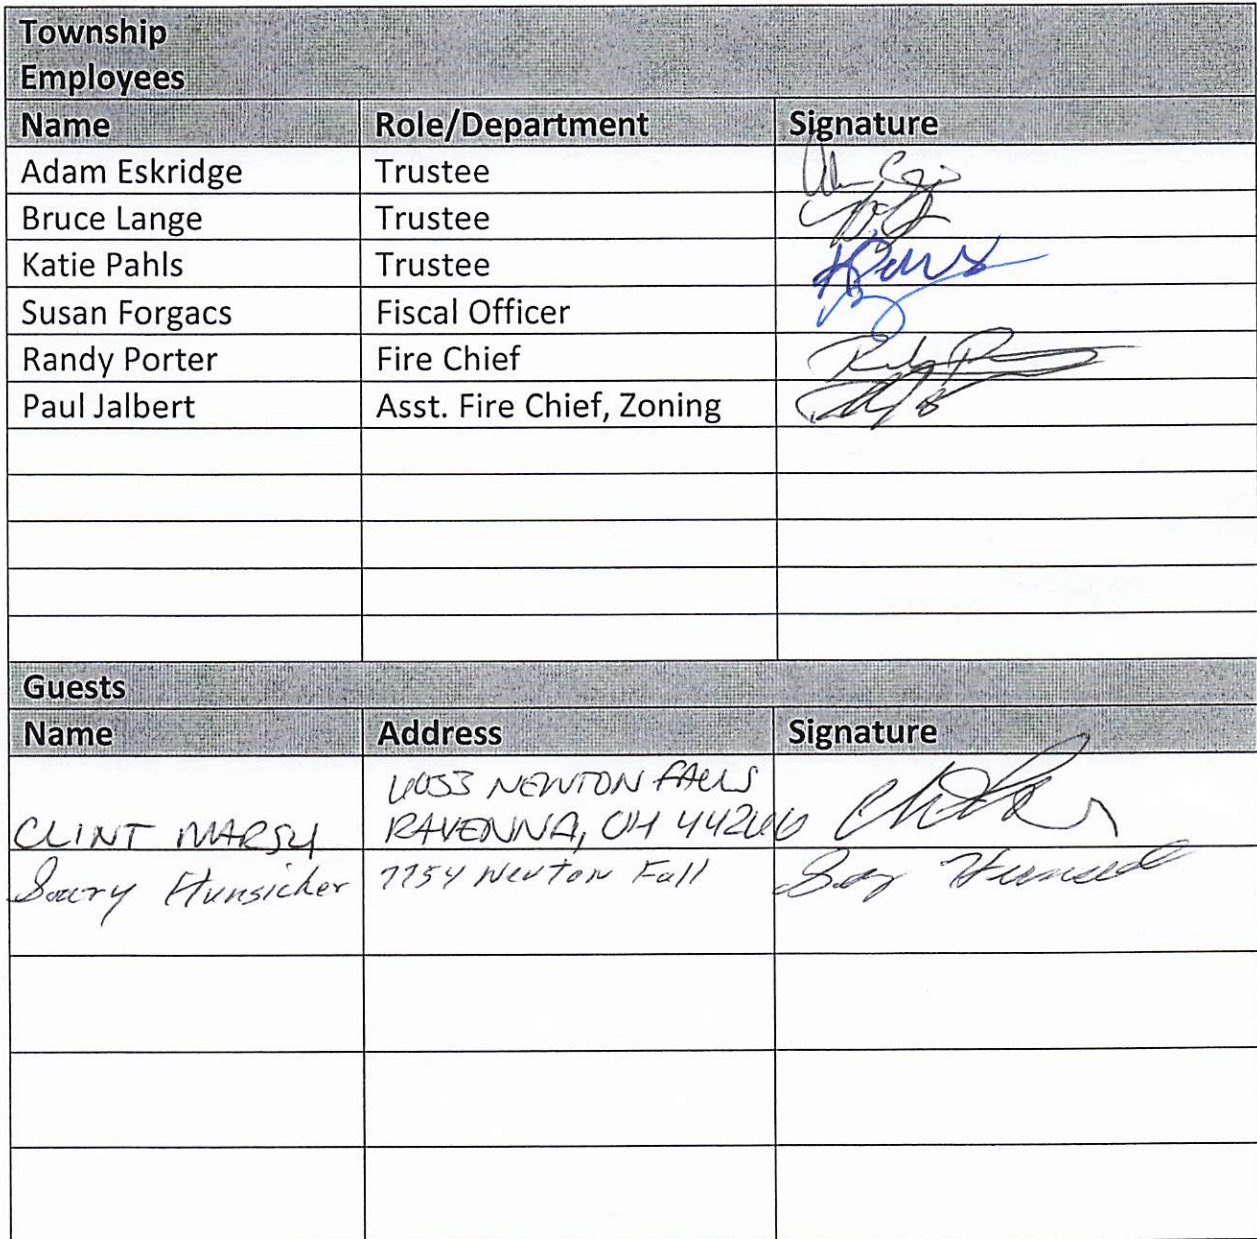 Township
Employees
Name Role/Department Signature
Adam Eskridge Trustee
Bruce Lange Trustee
Katie Pahls Trustee
Susan Forgacs Fiscal Officer
Randy Porter Fire Chief
Paul Jalbert Asst. Fire Chief, Zoning
Guests
Name Address Signature
NEWTON FALLS
CLINT MARSH RAVENNA, OH 44266
Hunsicker 7754 Newton Fall